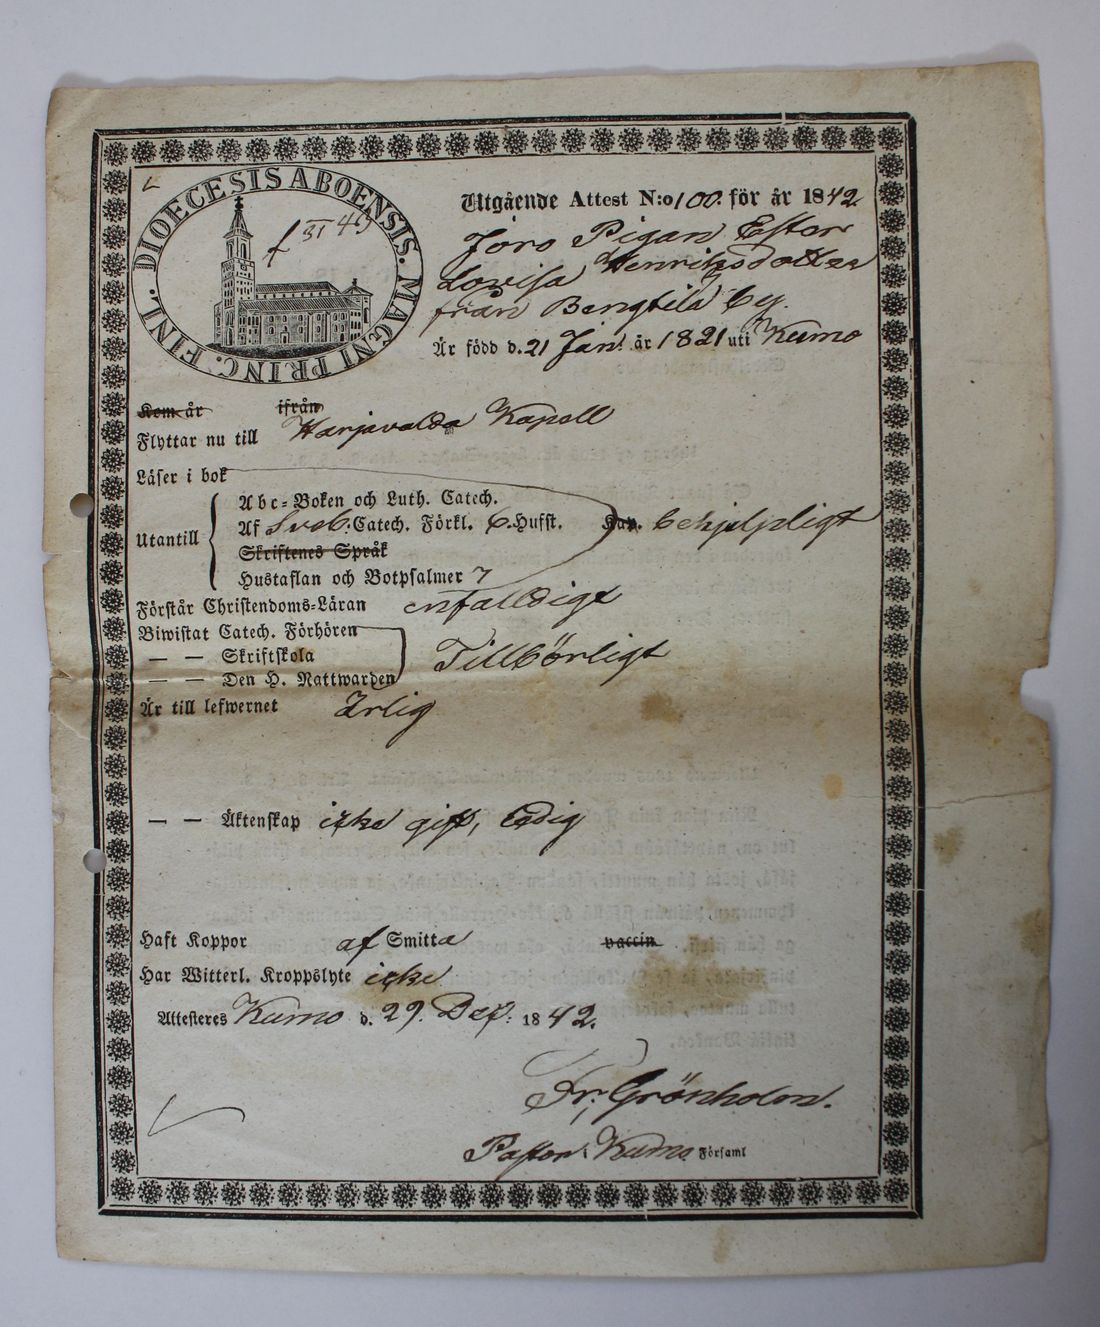 DIOECESIS ABOENSIS. MAGNI PRINC. FINL.
f 31 49
Utgående Attest N:o 100. för år 1842
Före Pigan Ester
Lovisa Henriksdotter
från Bengtilä by.
Är född d. 21 Jan: år 1821 uti Kumo
Kom år ifrån
Flyttar nu till Harjavalda Kapell
Läser i bok
Utantill
Abc-Boken och Luth. Catech.
Af Sveb. Catech. Förkl. 6. Hufst. Kap. behjelpligt
Skriftenes Språk
Hustaflan och Botpsalmer 7
Förstår Christendoms-Läran enfalldigt
Biwistat Catech. Förhören
— — Skriftskola Tillbörligt
— — Den H. Nattwarden
Är till lefwernet Ärlig
— — Äktenskap icke gift, ledig
Haft Koppor af Smitta vaccin
Har Witterl. Kroppslyte icke
Attesteres Kumo d. 29. Dec: 1842.
Fr. Grönholm.
Pastor i Kumo Församl